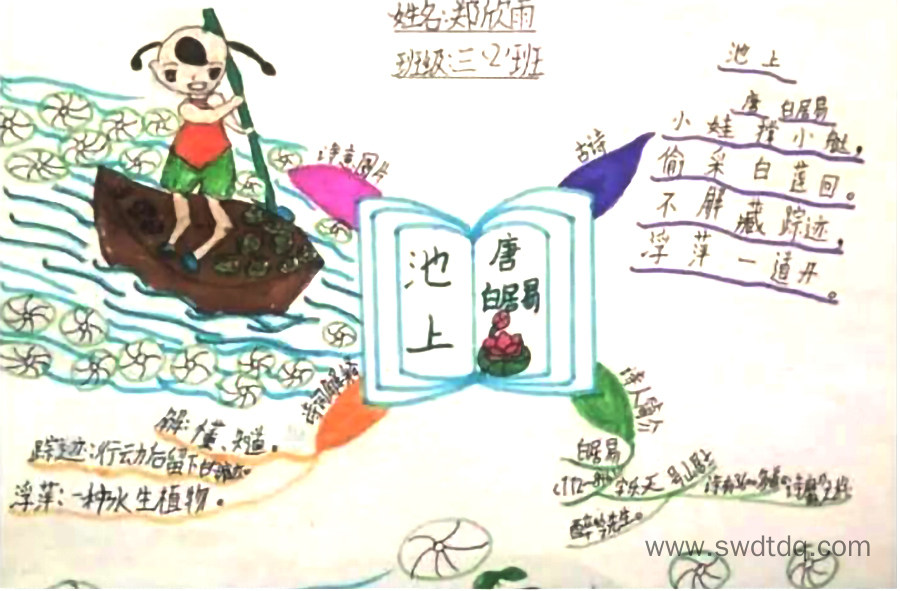 姓名:郑欣雨
班级:三(2)班
池上
唐 白居易
小娃撑小艇,
偷采白莲回。
不解藏踪迹,
浮萍一道开。
诗意图片
古诗
池上
唐
白居易
诗词解释
解:懂、知道。
踪迹:行动后留下的痕迹。
浮萍:一种水生植物。
诗人简介
白居易
(772-846)
字乐天
号山居士
醉吟先生。
www.swdtdq.com